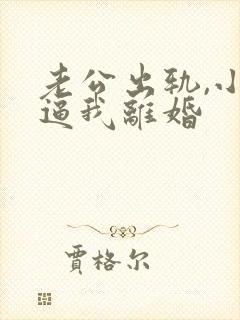 老公出轨,小
逼我離婚
賈格尔